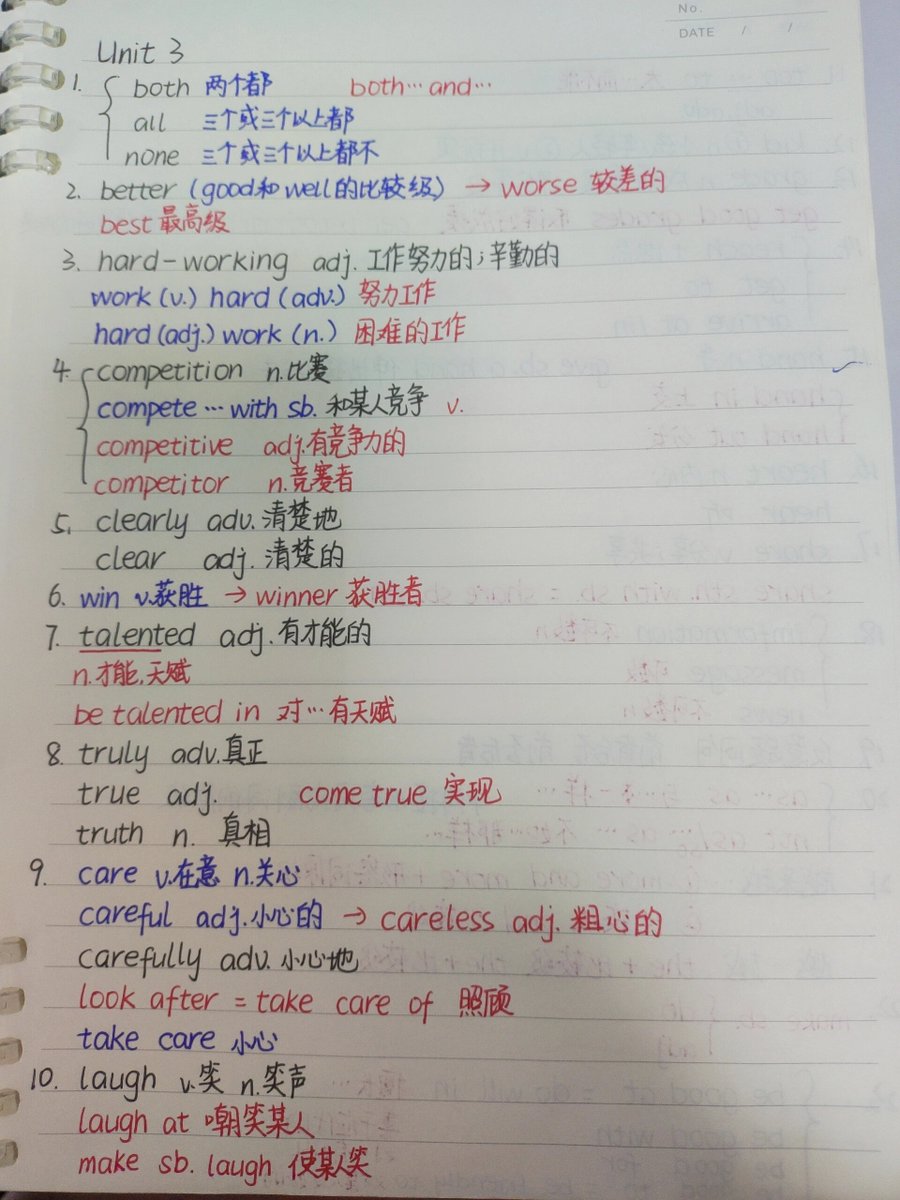 No.
DATE / /
Unit 3
1. both 两个都 both…and…
all 三个或三个以上都
none 三个或三个以上都不
2. better (good和well的比较级) → worse 较差的
best 最高级
3. hard-working adj. 工作努力的;辛勤的
work (v.) hard (adv.) 努力工作
hard (adj.) work (n.) 困难的工作
4. competition n.比赛
compete …with sb. 和某人竞争 v.
competitive adj.有竞争力的
competitor n.竞赛者
5. clearly adv.清楚地
clear adj. 清楚的
6. win v.获胜 → winner 获胜者
7. talented adj.有才能的
n.才能,天赋
be talented in 对…有天赋
8. truly adv.真正
true adj. come true 实现
truth n. 真相
9. care v.在意 n.关心
careful adj.小心的 → careless adj.粗心的
carefully adv.小心地
look after = take care of 照顾
take care 小心
10. laugh v.笑 n.笑声
laugh at 嘲笑某人
make sb. laugh 使某人笑